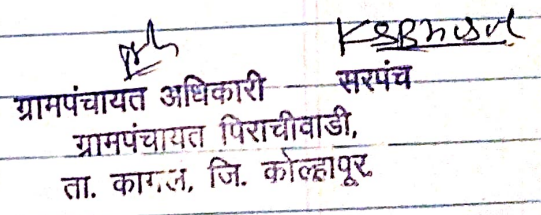 ग्रामपंचायत अधिकारी सरपंच
ग्रामपंचायत पिराचीवाडी,
ता. कागल, जि. कोल्हापूर